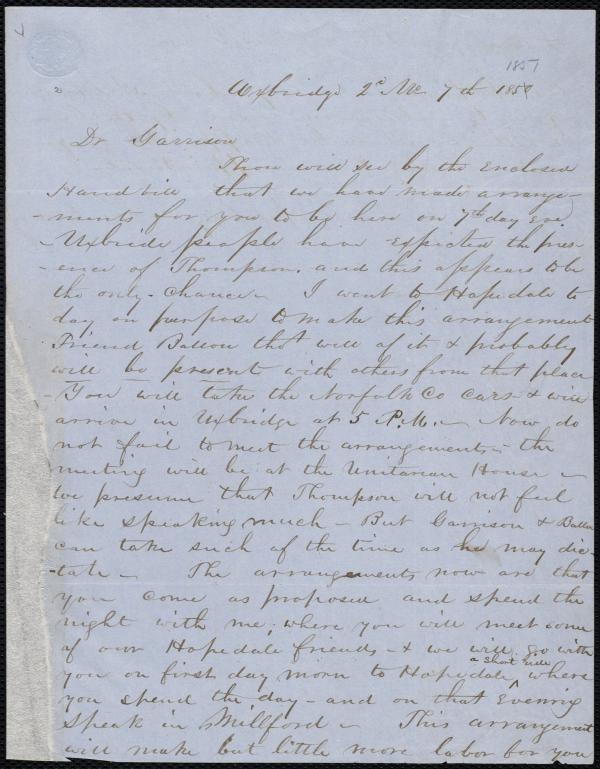 1857
Uxbridge 2d Mo 7th 1851
Dr Garrison
Thou will see by the enclosed
Hand bill that we have made arrange-
-ments for you to be here on 7th day Eve
-Uxbride people have expected the pres-
-ence of Thompson. and this appears to be
the only-chance- I went to Hopedale to
day on purpose to make this arrangement
Friend Ballou thot well of it & probably
will be present with others from that place
-You will take the Norfolk Co Cars & will
arrive in Uxbridge at 5 P.M. - Now do
not fail to meet the arrangements - the
meeting will be at the Unitarian House -
We presume that Thompson will not feel
like speaking much - But Garrison & Ballou
can take such of the time as he may dic-
-tate - The arrangements now are that
you come as proposed and spend the
night with me, where you will meet some
of our Hopedale friends - & we will go with
you on first day morn to Hopedale where
a short ride
you spend the day - and on that Evening
speak in Millford - This arrangement
will make but little more labor for you